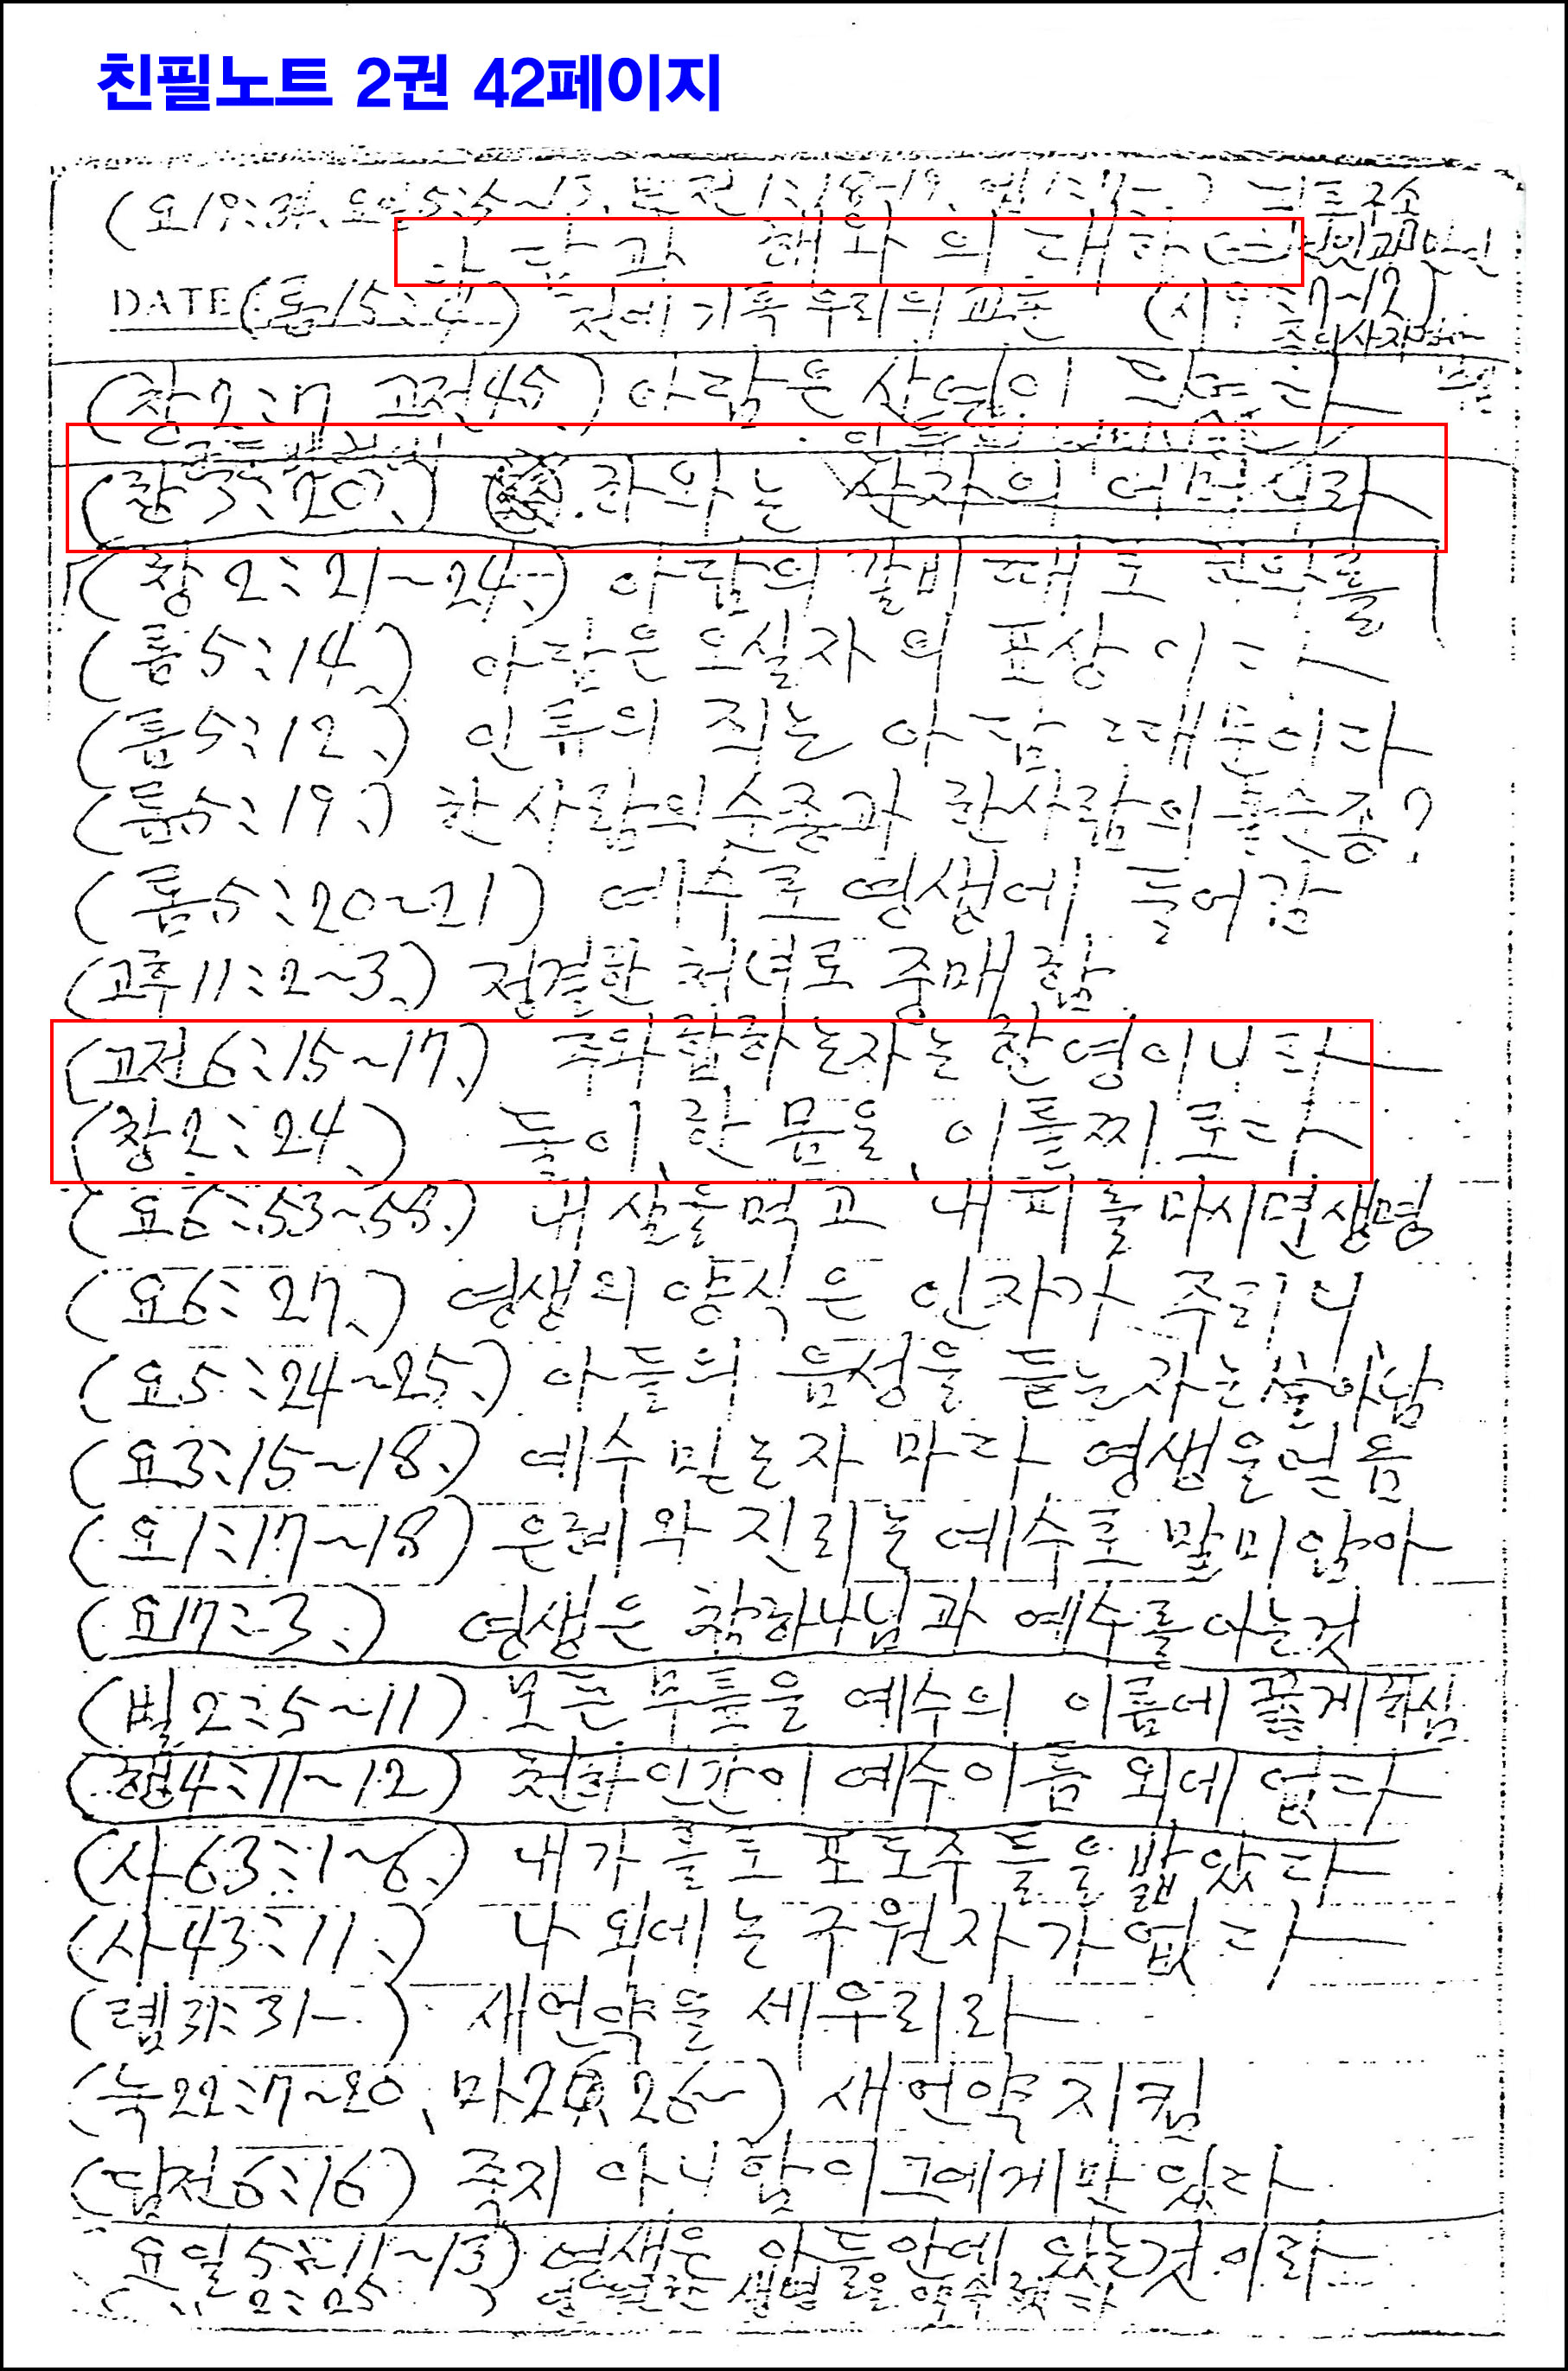 친필노트 2권 42페이지
(요19:34, 요일5:5~13,
아담과 해와의 대하여
DATE (롬15:4) 전에 기록 우리의 교훈 (시 7~12)
(창2:7 고전45) 아담은 산영이
(창3:20.) 하와는 산자의 어머니라
(창2:21~24.) 아담의 갈비
(롬5:14.) 아담은 오실자의 표상이라
(롬5:12.) 인류의 죄는 아담 때문이라
(롬5:19.) 한사람의 순종과 한사람의 불순종?
(롬5:20~21) 예수로 영생에 들어감
(고후11:2~3.) 정결한 처녀로 중매함
(고전6:15~17.) 주와 합하는자는 한 영이니라
(창2:24.) 둘이 한 몸을 이룰찌로다
(요6:53~55.) 내 살을 먹고 내 피를 마시면 생명
(요6:27.) 영생의 양식은 인자가 주리니
(요5:24~25.) 아들의 음성을 듣는자는 살아남
(요3:15~18.) 예수 믿는자 마다 영생을 얻음
(요1:17~18) 은혜와 진리는 예수로 말미암아
(요17:3.) 영생은 참하나님과 예수를 아는것
(빌2:5~11) 모든 무릎을 예수의 이름에 꿇게 하심
(행4:11~12) 천하인간이 예수이름 외에 없다
(사63:1~6.) 내가 홀로 포도주 틀을 밟았다
(사43:11.) 나 외에는 구원자가 없다
(렘31:31-.) 새언약을 세우리라
(눅22:7~20, 마26, 26~) 새언약 지킴
(딤전6:16) 죽지 아니함이 그에게만 있다
요일5:11~13) 영생은 아들안에 있는것이라
2:25 ) 영원한 생명